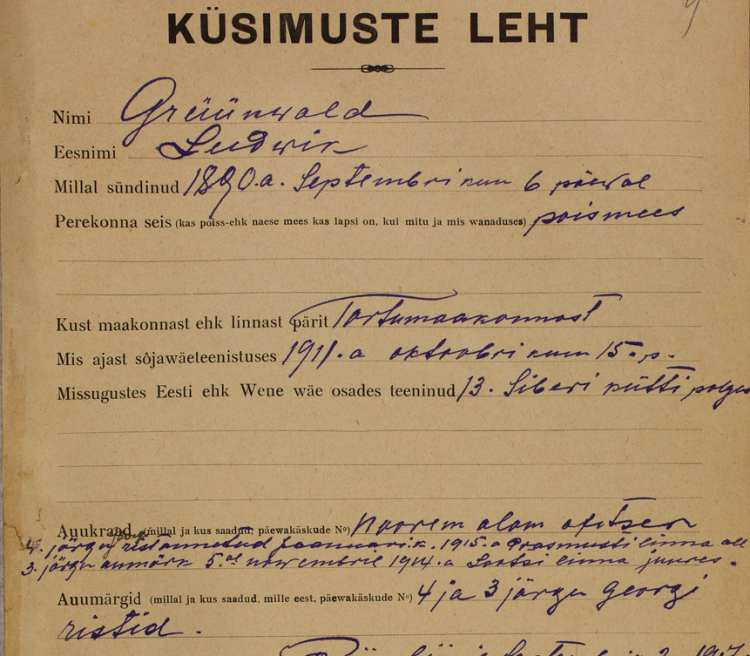 KÜSIMUSTE LEHT
Nimi Grüünwald
Eesnimi Ludwik
Millal sündinud 1890.a. Septembri kuu 6 päewal
Perekonna seis (kas poiss-ehk naese mees kas lapsi on, kui mitu ja mis wanaduses) poismees
Kust maakonnast ehk linnast pärit Tartumaakonnast
Mis ajast sõjawäeteenistuses 1911.a oktoobri kuu 15.p.
Missugustes Eesti ehk Wene wäe osades teeninud 13. Siberi kütti polgus
Auukraad (millal ja kus saadud, päewakäskude №) Noorem alam ofitser
4. järgu annetud jaanuari k. 1915.a linna all
3. järgu aumärk 5.al nowembril 1914.a linna juures.
Auumärgid (millal ja kus saadud, mille eest, päewakäskude №) 4 ja 3 järgu Georgi
ristid.